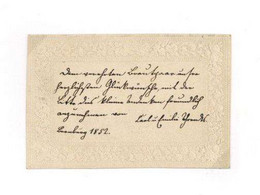 Dem verehrten Brautpaar unsre
herzlichsten Glückwünsche, mit der
Bitte das kleine Andenken freundlich
anzunehmen von Carl u Emilie
Bernburg 1852.